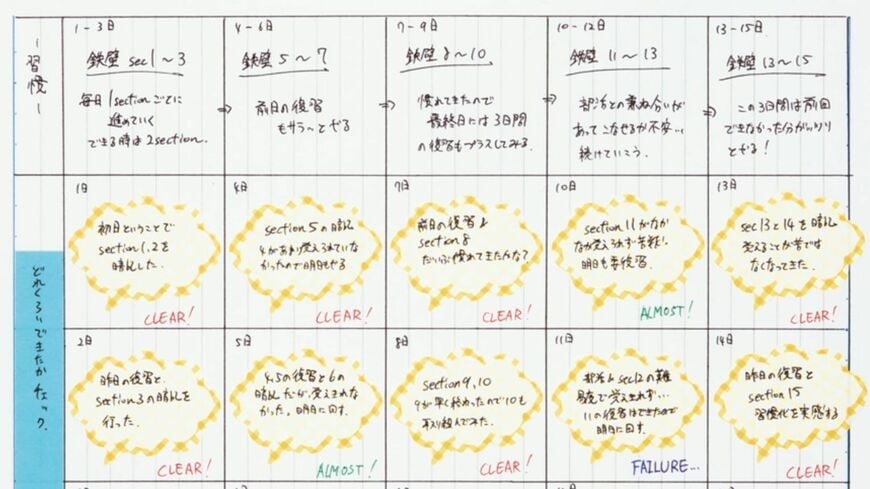 -習慣-
1-3日
鉄壁 sec1～3
毎日1sectionごとに
進めていく
できる時は2section.
4-6日
鉄壁 5～7
⇒
前日の復習
もサラ～とやる
7-9日
鉄壁 8～10
⇒
慣れてきたので
最終日には3日間
の復習もプラスしてみる.
10-12日
鉄壁 11～13
⇒
部活との兼ね合いが
あってこなせるか不安…
続けていこう.
13-15日
鉄壁 13～15
⇒
この3日間は前回
できなかった分がっつり
とやる!
どれくらいできたかチェック.
1日
初日ということで
section1.2を
暗記した.
CLEAR!
4日
section5の暗記
4があまり覚えられていな
かったので明日もやる
CLEAR!
7日
前日の復習と
section8
だいぶ慣れてきたかな?
CLEAR!
10日
section11がなか
なか覚えられず苦戦!
明日も要復習.
ALMOST!
13日
sec13と14を暗記
覚えることが苦では
なくなってきた.
CLEAR!
2日
昨日の復習と
section3の暗記を
行った.
CLEAR!
5日
4.5の復習と6の
暗記だが覚えきれな
かった。明日に回す.
ALMOST!
8日
section9,10
9が早く終わったので10も
取り組んでみた.
CLEAR!
11日
部活とsec12の難
易度で覚えきれず…
11の復習はできたので
明日に回す.
FAILURE...
14日
昨日の復習と
section15
習慣化を実感する
CLEAR!